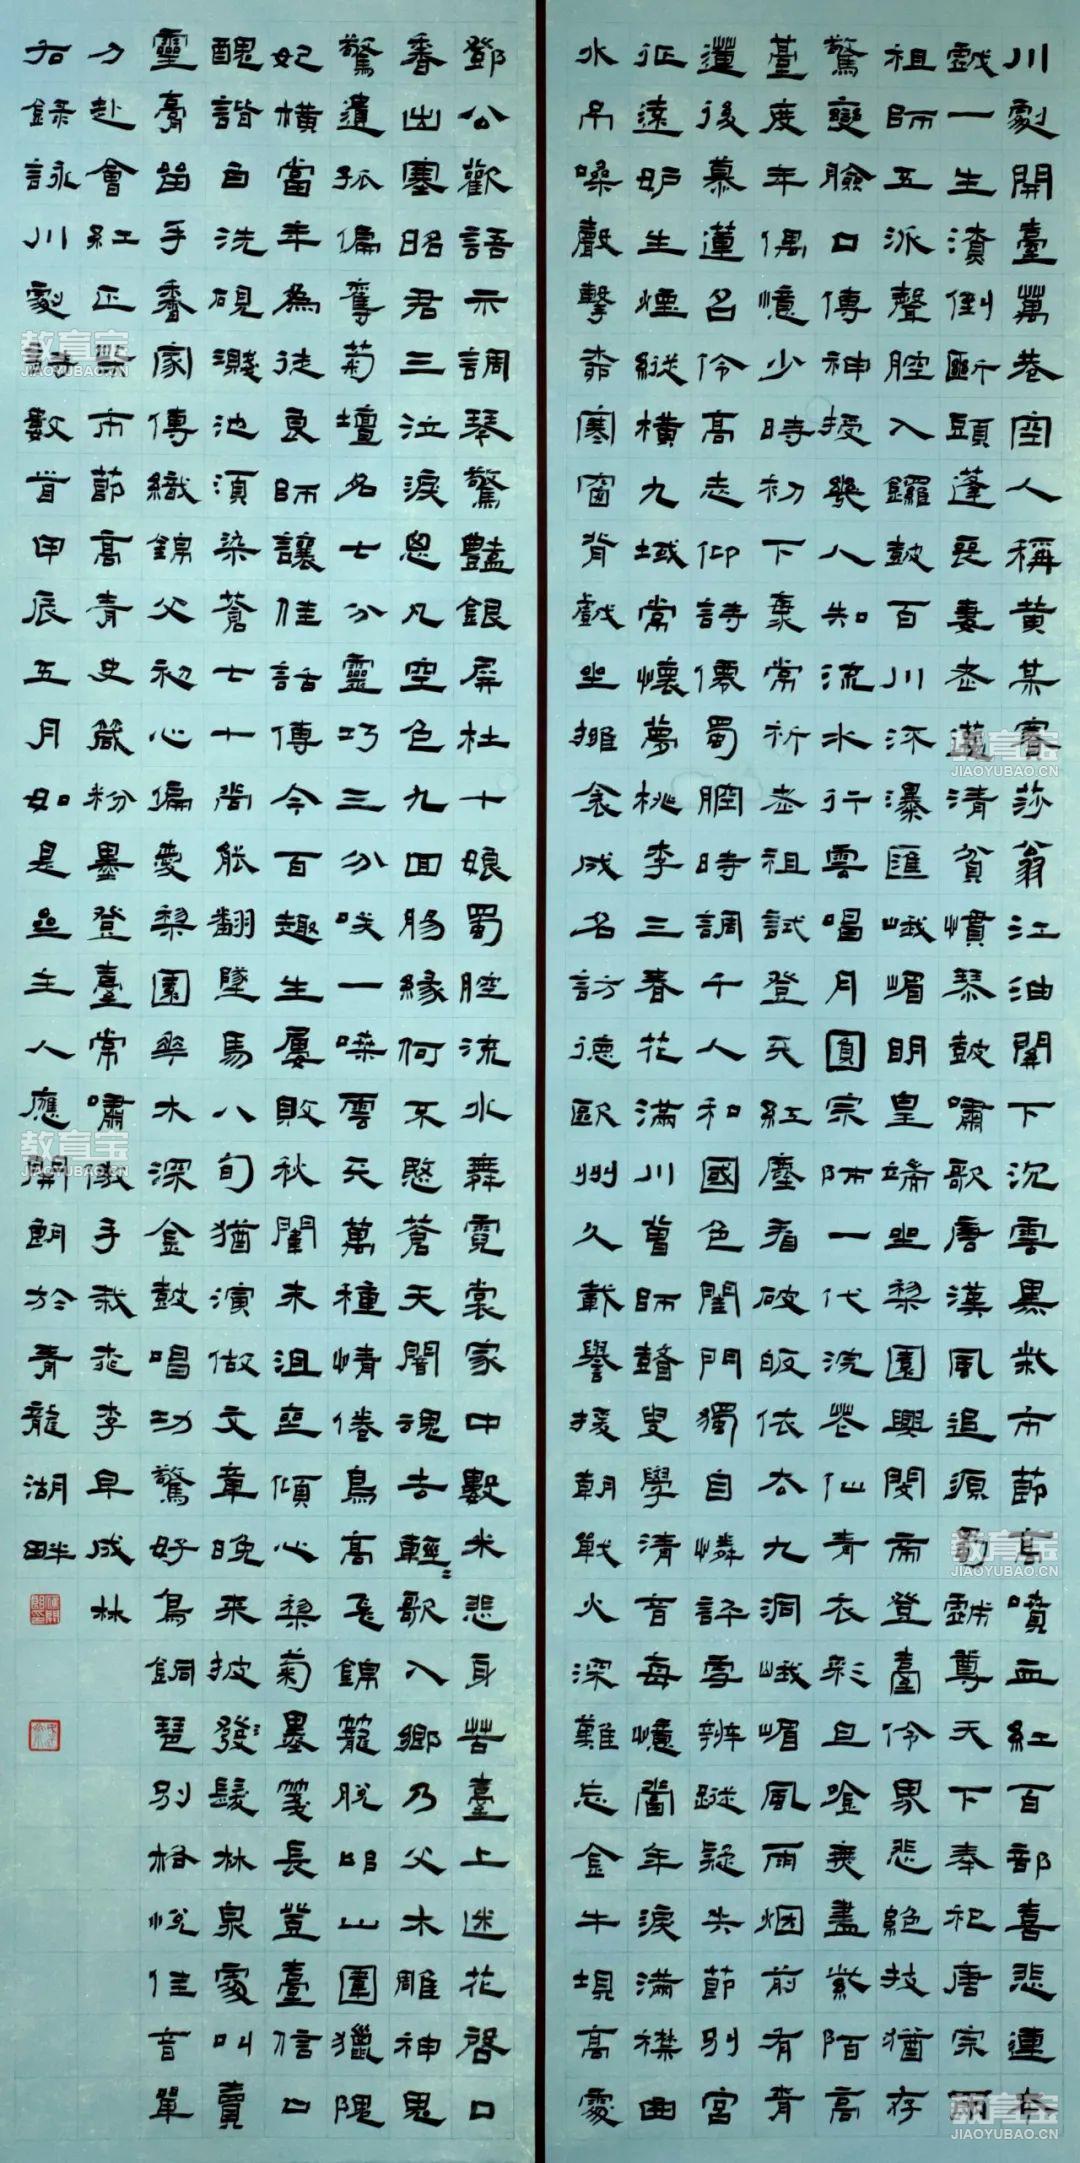 川劇開臺萬巷空人稱黄某賽莎翁江油關下沉雲黑柴市節高噴血紅百部喜悲連本
戲一生潦倒斷頭蓬喪妻老清貧慣琴鼓嘯歌唐漢風追源尊天下奉祀唐宗兩
祖師五派聲腔入鑼鼓百川沐瀑匯峨嵋明皇端坐梨園興閔帝登臺伶界悲絕技猶存
驚變臉口傳神授幾人知流水行雲唱月圓宗師一代浣花仙青衣彩旦唫喪盡紫陌高
臺度年年偶憶少時初下裏常祈老祖試登天紅塵看破皈依太九洞峨嵋風雨烟前有青
蓮後慕蓮名伶高志仰詩儒蜀腔時調千人和國色閨門獨自憐評雪辨蹤疑失節別宮
征遠妒生煙縱橫九域常懷夢桃李三春花滿川曹師瞽叟學清音每憶當年淚滿襟曲
水吊嗓聲擊柝寒窗背戲坐擁衾成名訪德歐州久載譽援朝戰火深難忘金牛壩高處
鄧公歡語示調琴驚豔銀屏杜十娘蜀腔流水舞霓裳家中數米悲身苦臺上迷花啓口
香出塞昭君三泣淚思凡空色九回腸緣何不愍蒼天闇魂去輕輕歌入鄉乃父木雕神鬼
驚遺孤偏奪菊壇名七分靈巧三分咲一嗓雲天萬種情倦鳥高飛錦籠脫叩山圍獵隗
妃橫當年為徒良師讓佳話傳今百趣生屢敗秋闈未沮喪傾心梨菊墨箋長登臺信口
醜諧自洗硯濺池須染蒼七十尚能翻墜馬八旬猶演做文章晚來披發髮林泉處叫賣
靈膏留手香家傳織錦父初心偏愛梨園華木深金鼓唱功驚好鳥銅琶別格悅佳音單
刀赴會紅正柴市節高青史箴粉墨登臺常嘯傲手栽桃李早成林
右錄詠川劇詩數首甲辰五月如是主人應開朗於青龍湖畔
教育宝
JIAOYUBAO.CN
教育宝
JIAOYUBAO.CN
教育宝
JIAOYUBAO.CN
教育宝
JIAOYUBAO.CN
教育宝
JIAOYUBAO.CN